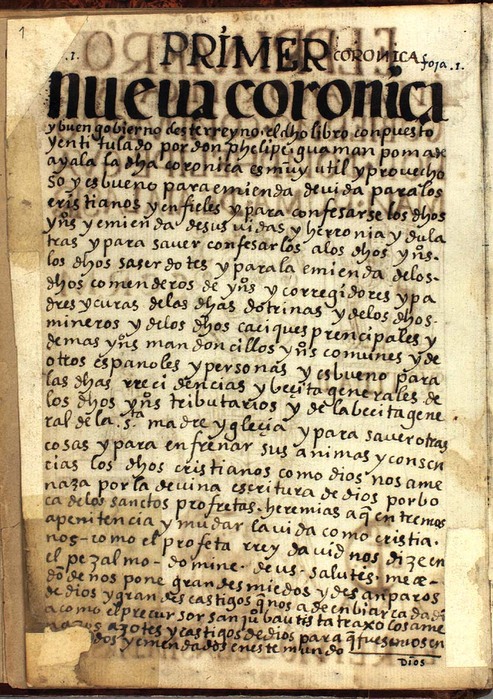 1
.1. PRÍMER CORONICA foja .1.
nueva coronica
y buen gobierno deste rreyno. el dho libro conpuesto
y entitulado por don phelipe guaman poma de
ayala la dha coronica es muy util y provecho
so y es bueno para emienda de vida para los
cristianos y enfieles y para confesarse los dhos
yns y emienda de sus vidas y herronia ydula
tras y para saver confesarlos a los dhos yns.
los dhos saserdotes y para la emienda de los
dhos comenderos de yns y corregidores y pa
dres y curas de las dhas dotrinas y de los dhos
mineros y de los dhos caciques prencipales y
demas yns mandoncillos yns comunes y de
otros españoles y personas y es bueno para
las dhas rrecidencias y becita generales de
los dhos yns tributarios y de la becita gene
ral de la sta madre yglecia y para saver otras
cosas y para enfrenar sus animas y consen
cias los dhos cristianos como dios nos ame
naza por la devina escritura de dios por bo
ca de los sanctos profetas. heremias a q entremos
a penitencia y mudar la vida como cristia.
nos - como el profeta rrey david nos dize en
el pezalmo - domine. deus. salutes. meae -
do de nos pone grandes miedos y desanparos
de dios y grandes castigos q nos a de enbiar cada dia
a como el precursor san ju bautista traxo los ame
nazos azotes y castigos de dios para q fuesemos en
dos y emendados en este mundo
Dios